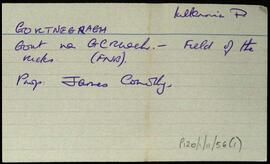 Kilkerrin P
GORTNEGRAGH
Gort na gCruach. - Field of the
ricks (FNB)
Prop. James Connolly.
P120/1/11/56(1)